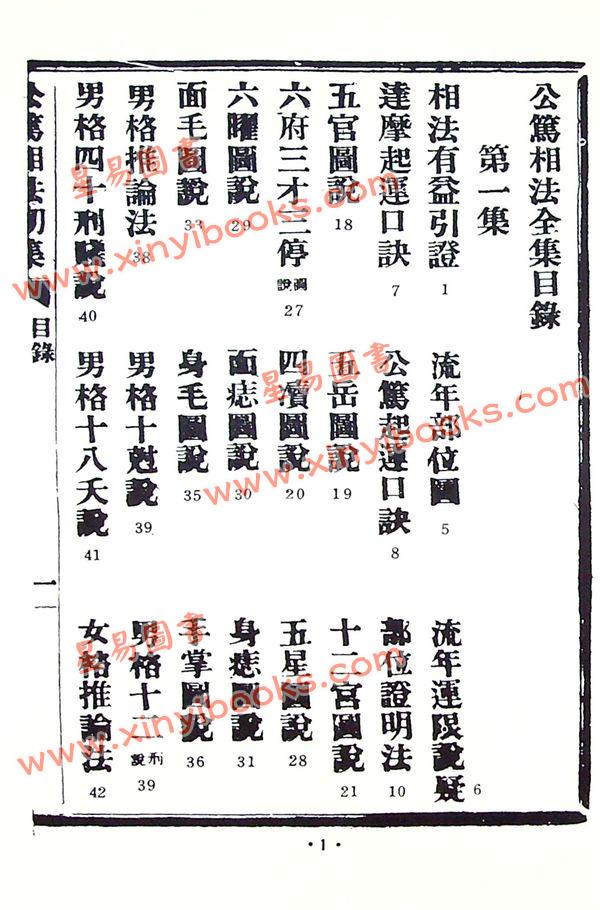 公篤相法全集目錄
第一集
相法有益引證 1
流年部位圖 5
流年運限說疑 6
達摩起運口訣 7
公篤起運口訣 8
部位證明法 10
五官圖說 18
五岳圖說 19
十二宮圖說 21
六府三才三停圖說 27
四瀆圖說 20
五星圖說 28
六曜圖說 29
面痣圖說 30
身痣圖說 31
面毛圖說 33
身毛圖說 35
手掌圖說 36
男格推論法 38
男格十剋說 39
男格十二刑說 39
男格四十刑 說 40
男格十八夭說 41
女格推論法 42
公篤相法初集
目錄
一
·1·
星易圖書
www.xinyibooks.com
星易圖書
www.xinyibooks.com
星易圖書
www.xinyibooks.com